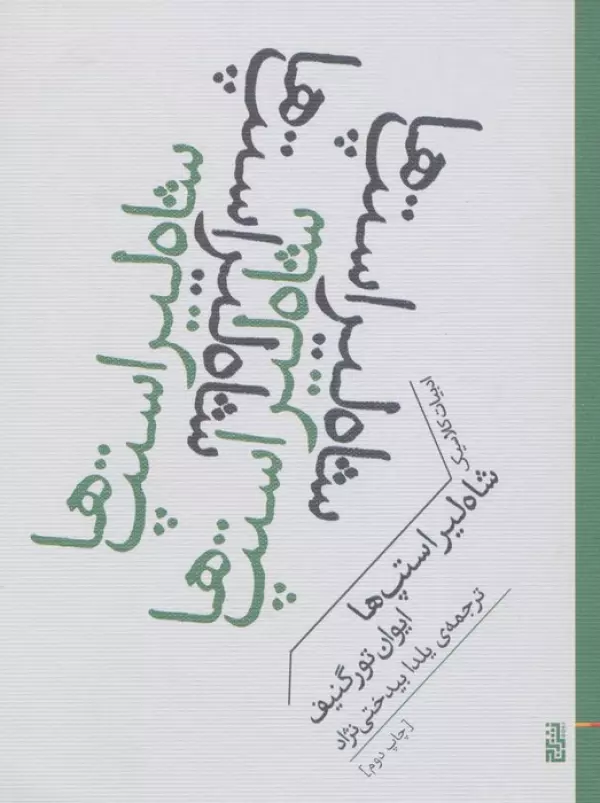 شاه لیر استپ‌ها
شاه لیر استپ‌ها
شاه لیر استپ‌ها
شاه لیر استپ‌ها
ادبیات کلاسیک
شاه لیر استپ‌ها
ایوان تورگنیف
ترجمه‌ی یلدا بیدختی‌نژاد
[چاپ دوم]